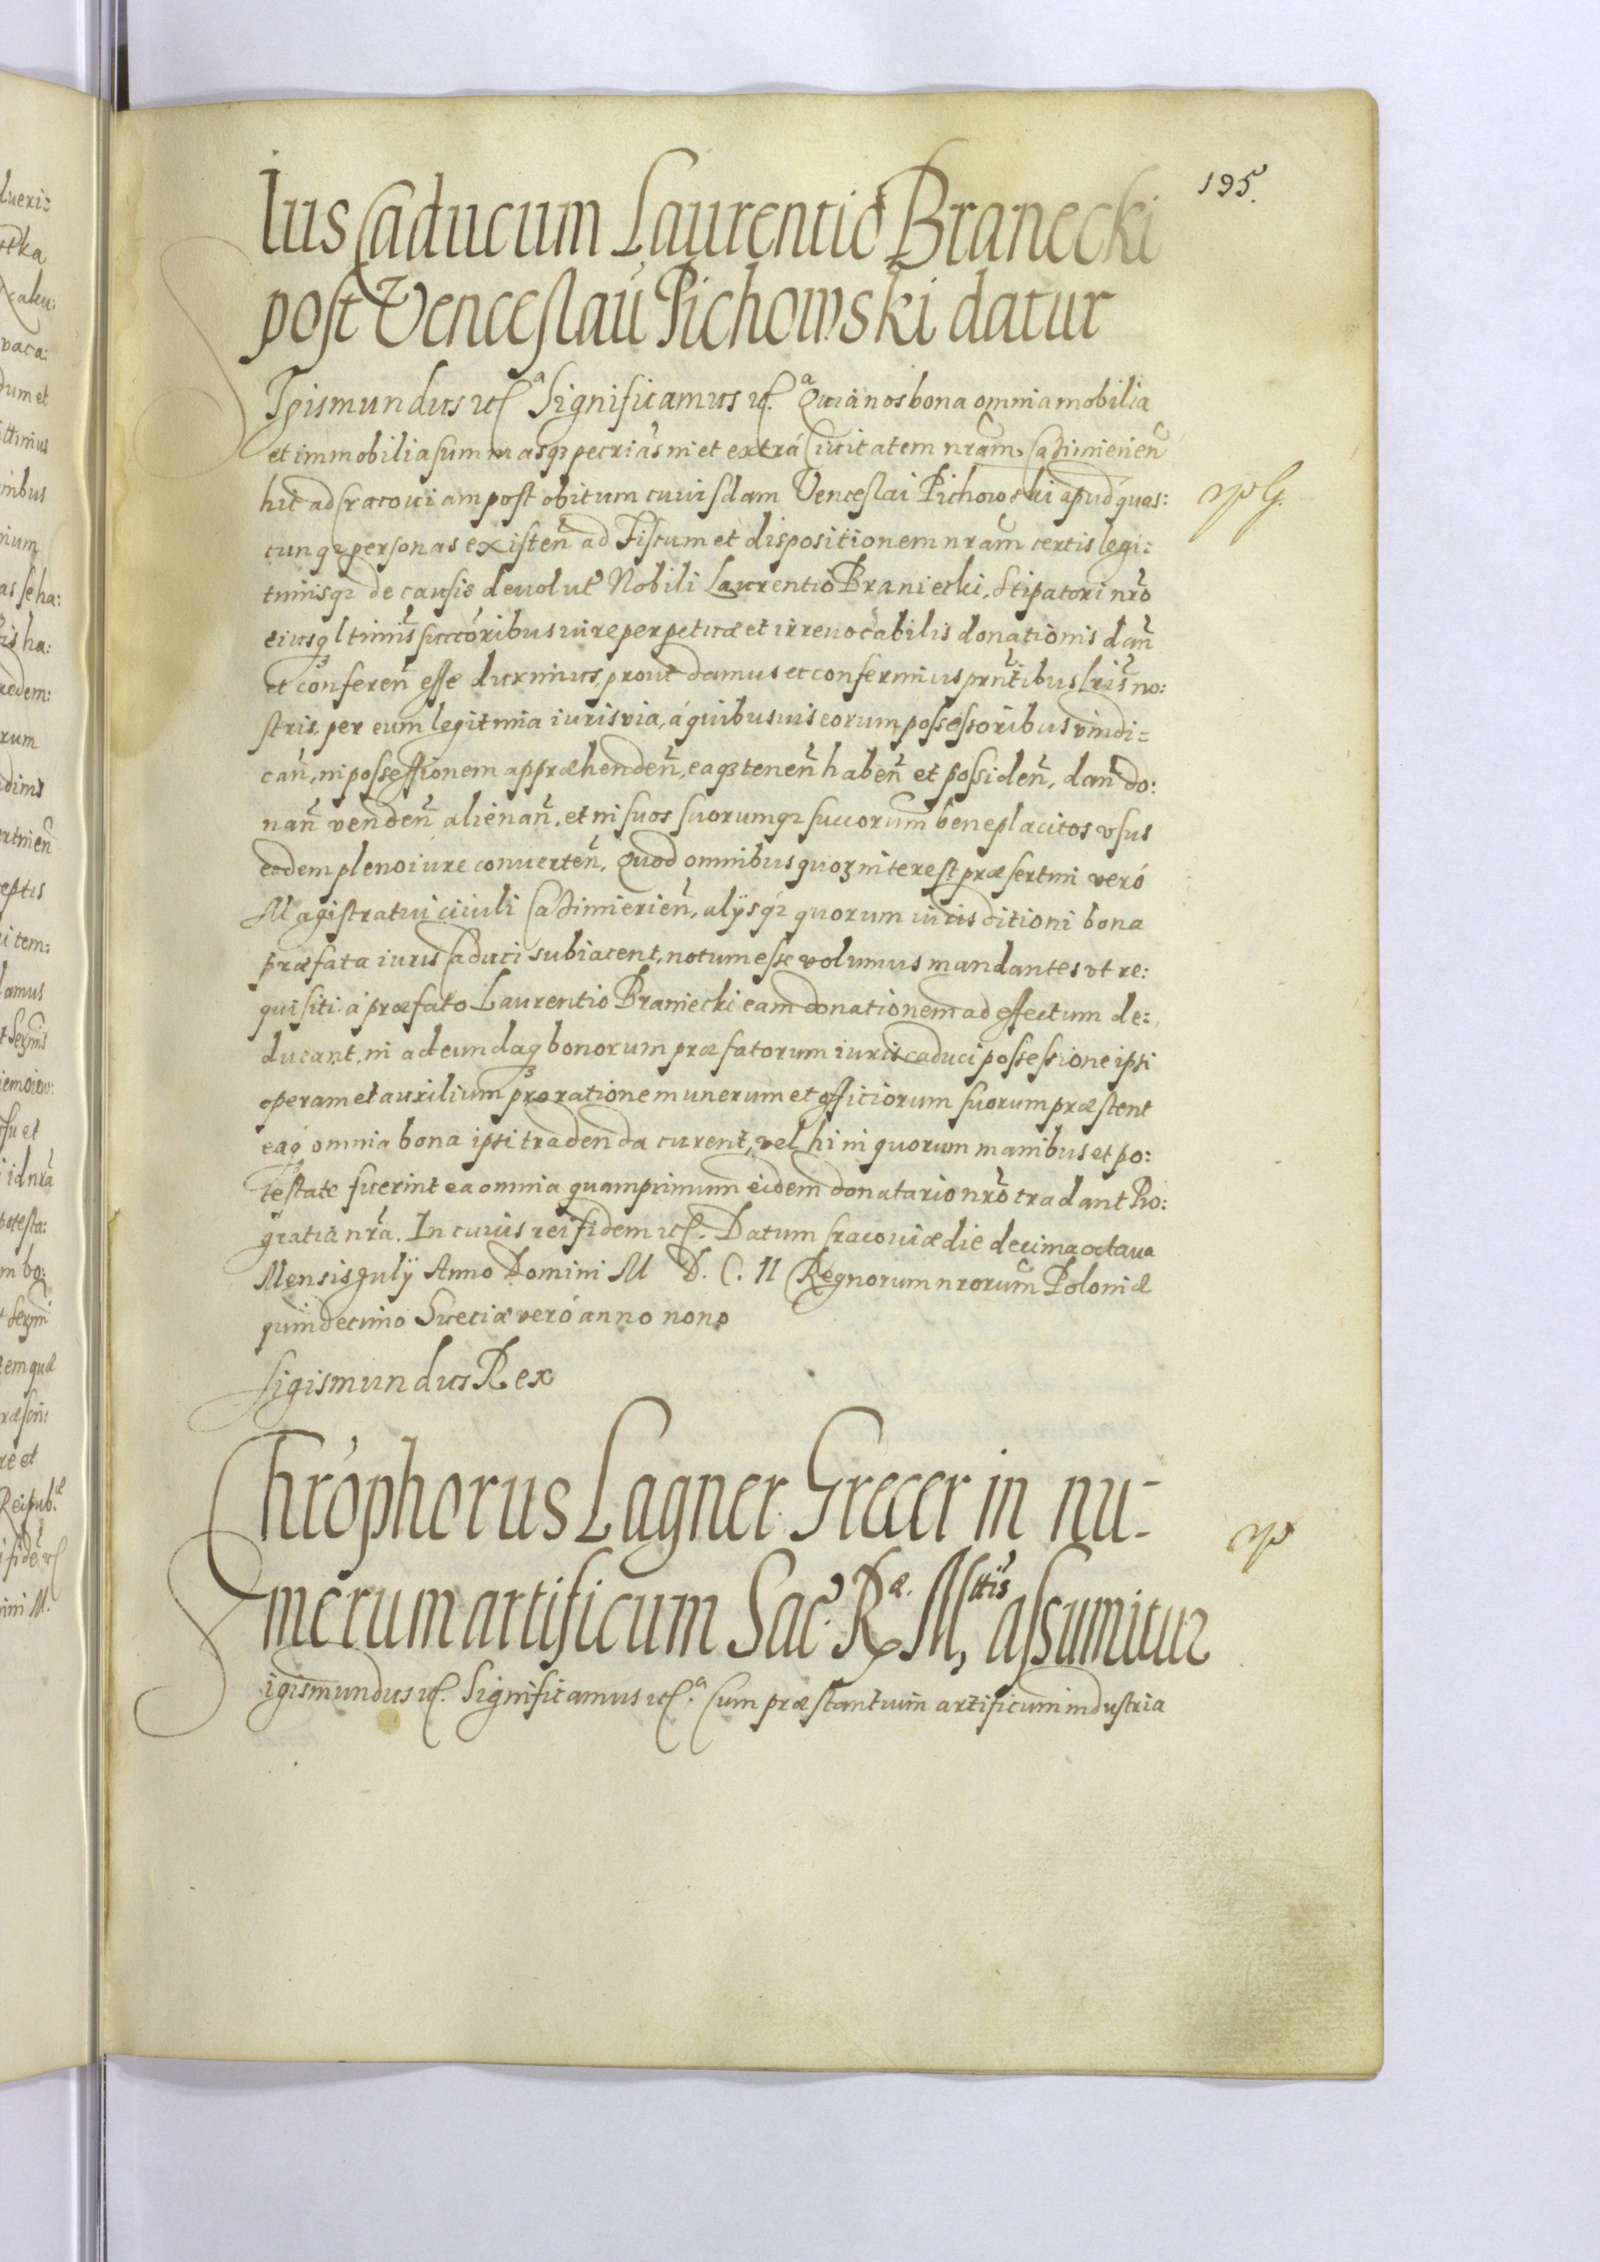 195.
Ius Caducum Laurentio Branecki
post Venceslaū Pichowski datur
Sigismundus etc̃ª Significamus etc.ª Quia nos bona omnia mobilia
et immobilia summasq̃ pecrias in et extrá Ciuitatem nram̃ Casimierien̄
hic ad Cracouiam post obitum cuiusdam Venceslai Pichowski apud quas:
cunq̃ personas existen̄ ad Fiscum et dispositionem nram̃ certis legi:
timisq̃ de causis deuolut̃ Nobili Laurentio Braniecki, Stipatori nr̃o
eiusq̃ ltimis̃ succoribus iure perpetuæ et irreuocabilis donationis dan̄
et conferen̄ esse duximus, prout damus et conferimus prñtibus lris̃ no:
stris, per eum legitima iuris via, á quibusuis eorum possessoribus vindi=
can̄, in possessionem appræhenden̄, eaq̃ tenen̄ haben̄ et possiden̄, dan̄ do:
nan̄ venden̄ alienan̄, et in suos suorumq̃ succorum̃ beneplacitos vsus
eodem pleno iure conuerten̄. Quod omnibus quoꝝ interest præsertim veró
Magistratui ciuili Casimierien̄, alijsq̃ quorum iurisditioni bona
præfata iuris Caduci subiacent, notum esse volumus mandantes vt re:
quisiti á præfato Laurentio Braniecki eam donationem ad effectum de:
ducant, in adeundaq̃ bonorum præfatorum iuris caduci possessione ipsi
operam et auxilium pro ratione munerum et officiorum suorum præstent
eaq̃ omnia bona ipsi tradenda curent, vel hi in quorum manibus et po:
testate fuerint ea omnia quamprimum eidem donatario nr̃o tradant Pro:
gratia nr̃a. In cuius rei fidem etc̃. Datum Cracouiæ die decima octaua
Mensis Julij Anno Domini M D. C. II Regnorum nrorum̃ Poloniæ
quindecimo Sueciæ veró anno nono
Sigismundus Rex
Chrophorus Lagner Grecer in nu-
merum artificum Sac̃. Ræ. Mttis assumitur
Sigismundus etc̃. Significamus etc̃.ª Cum præstantium artificum industria